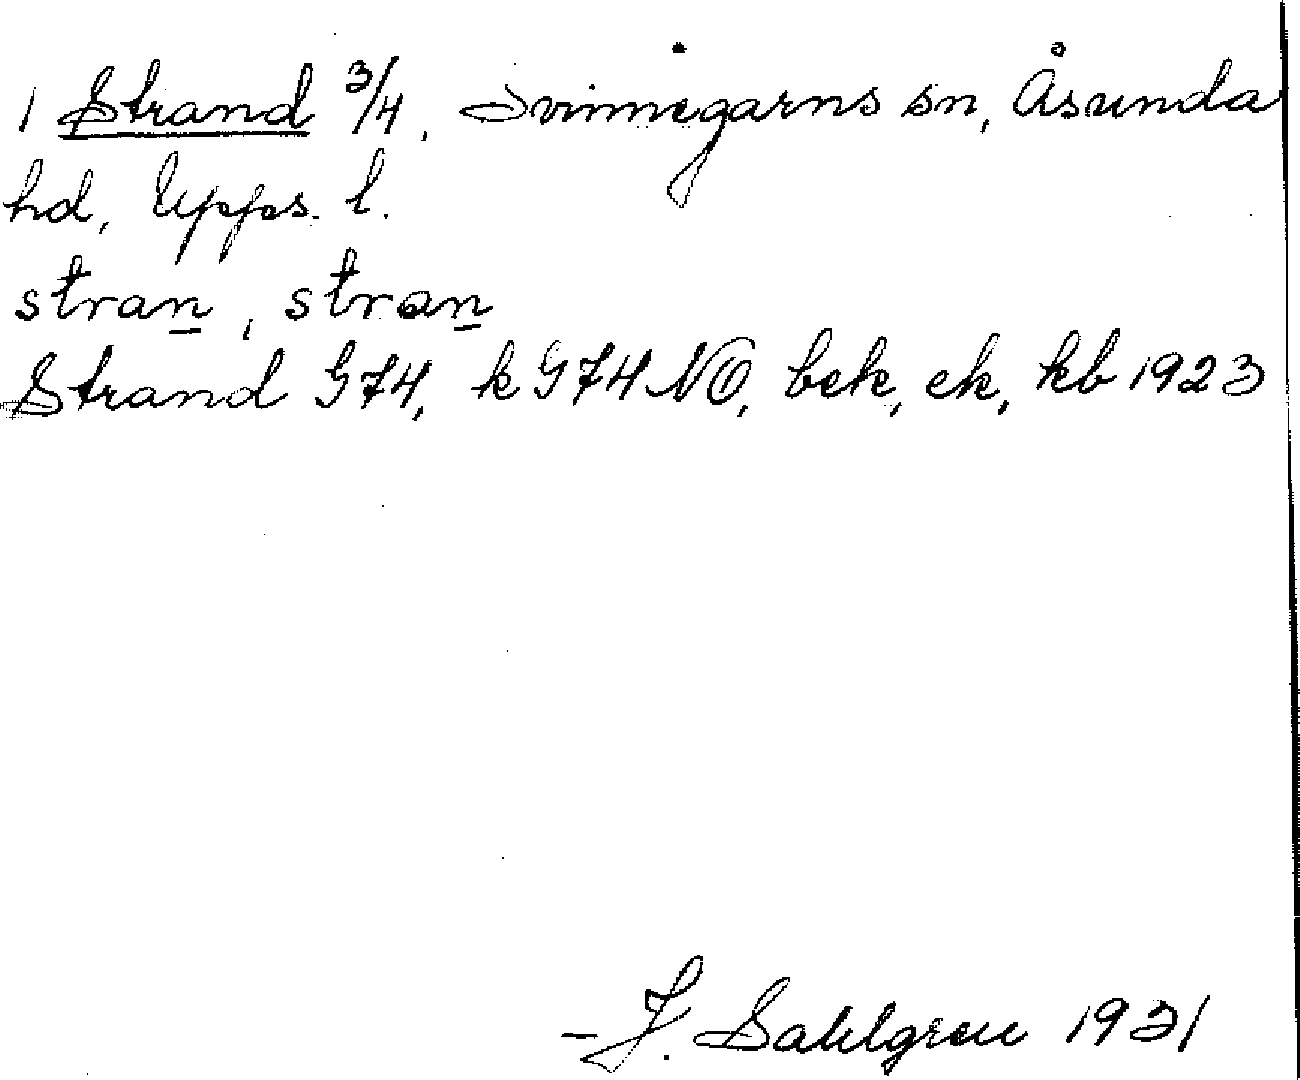 1 Strand 3/4, Svinnegarns sn, Åsunda
hd, Upps. l.
stran, stran
Strand G74, k G74 NO, bek, ek, kb 1923
- J. Sahlgren 1931